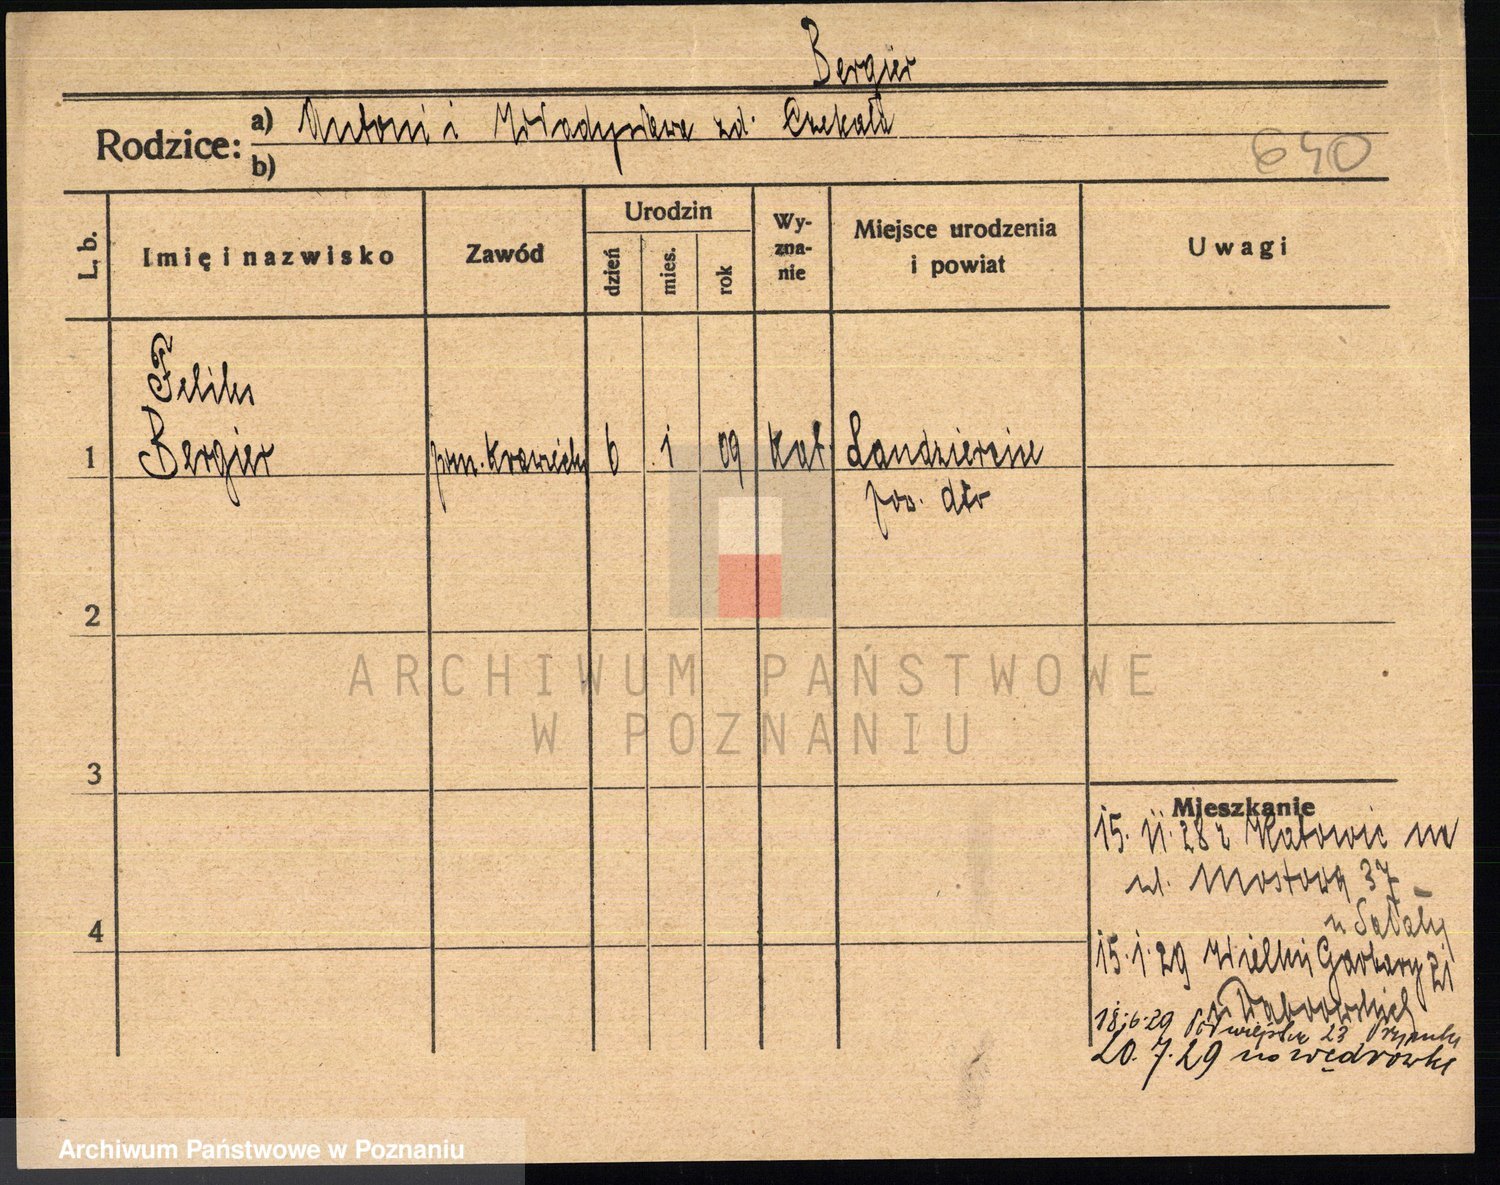 Bergier
Rodzice:
a) Antoni i Władysława zd. Czekała
b)
640
L. b.
Imię i nazwisko
Zawód
Urodzin
dzień
mies.
rok
Wy-
zna-
nie
Miejsce urodzenia
i powiat
Uwagi
Feliks
1 Bergier pom. krawiecki 6 1 09 kat.
pow. dto
2
3
4
Mieszkanie
15. 11. 28 z Katowic na
ul. Mostową 37
u
15. 1. 29 Wielkie Garbary 21
u
18.6.29 23
20. 7. 29 na wędrówkę
ARCHIWUM PAŃSTWOWE
W POZNANIU
Archiwum Państwowe w Poznaniu